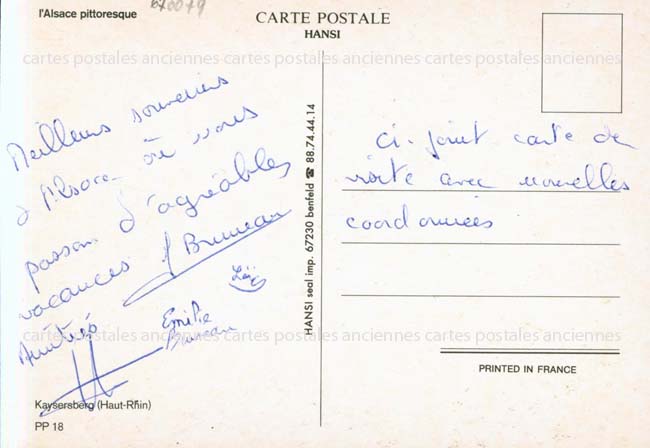 l'Alsace pittoresque
CARTE POSTALE
HANSI
Meilleurs souvenirs
d'Alsace où nous
passons d'agréables
vacances J Bruneau
Amitiés
Emilie
Bruneau
Kaysersberg (Haut-Rhin)
PP 18
HANSI seal imp. 67230 benfeld ☎ 88.74.44.14
ci-joint carte de
visite avec nouvelles
coordonnées
PRINTED IN FRANCE
cartes postales anciennes cartes postales anciennes cartes postales anciennes
cartes postales anciennes cartes postales anciennes cartes postales anciennes
cartes postales anciennes cartes postales anciennes cartes postales anciennes